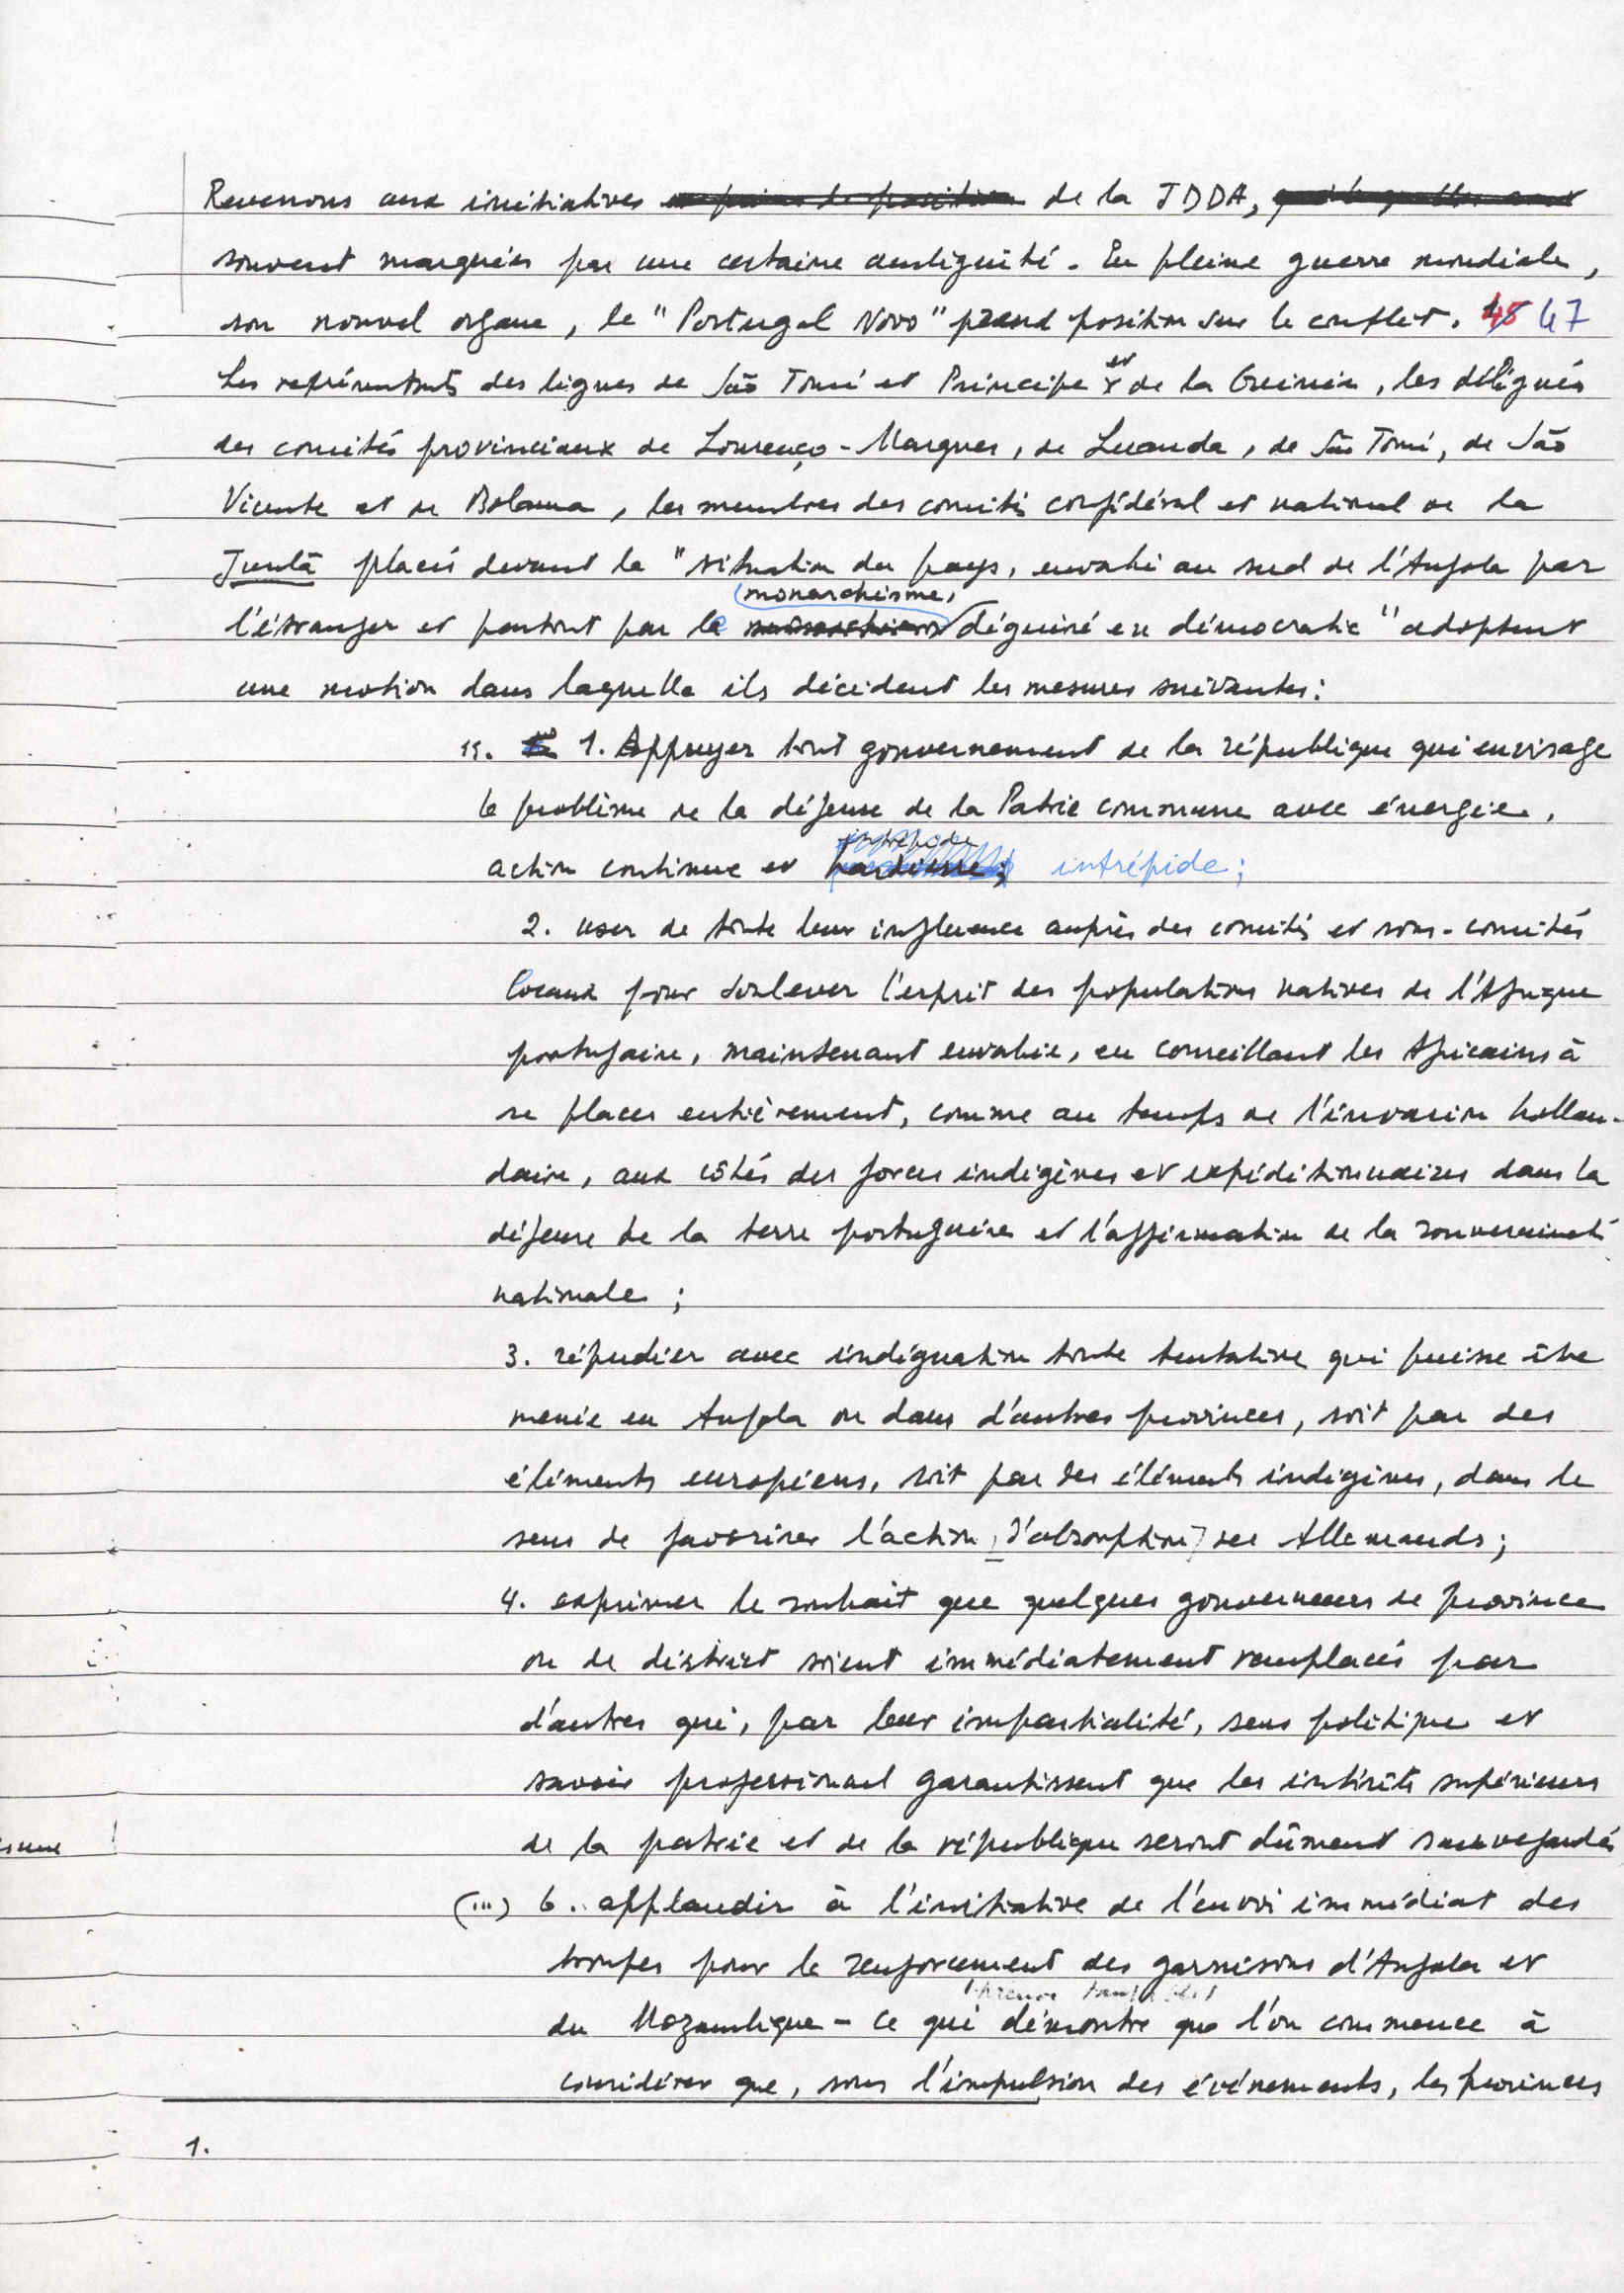 Revenons aux initiatives de la JDDA,
souvent marquées par une certaine ambiguïté. En pleine guerre mondiale,
son nouvel organe, le "Portugal Novo" prend position sur le conflit. 45 47
Les représentants des ligues de São Tomé et Principe et de la Guinée, les délégués
des comités provinciaux de Lourenço-Marques, de Luanda, de São Tomé, de São
Vicente et de Bolama, les membres des comités confédéral et national de la
Junta placés devant la "situation du pays, envahi au sud de l'Angola par
monarchisme,
l'étranger et partout par le déguisé en démocratie" adoptent
une motion dans laquelle ils décident les mesures suivantes:
15. 1. Appuyer tout gouvernement de la république qui envisage
le problème de la défense de la Patrie commune avec énergie,
intrépide
action continue et intrépide;
2. user de toute leur influence auprès des comités et sous-comités
locaux pour soulever l'esprit des populations natives de l'Afrique
portugaise, maintenant envahie, en conseillant les Africains à
se placer entièrement, comme au temps de l'invasion hollan-
daise, aux côtés des forces indigènes et expéditionnaires dans la
défense de la terre portugaise et l'affirmation de la souveraineté
nationale;
3. répudier avec indignation toute tentative qui puisse être
menée en Angola ou dans d'autres provinces, soit par des
éléments européens, soit par des éléments indigènes, dans le
sens de favoriser l'action [d'absorption] des Allemands;
4. exprimer le souhait que quelques gouverneurs de province
ou de district soient immédiatement remplacés par
d'autres qui, par leur impartialité, sens politique et
savoir professionnel garantissent que les intérêts supérieurs
de la patrie et de la république seront dûment sauvegardés
(...) 6. applaudir à l'initiative de l'envoi immédiat des
troupes pour le renforcement des garnisons d'Angola et
du Mozambique - ce qui démontre que l'on commence à
considérer que, sous l'impulsion des événements, les provinces
1.